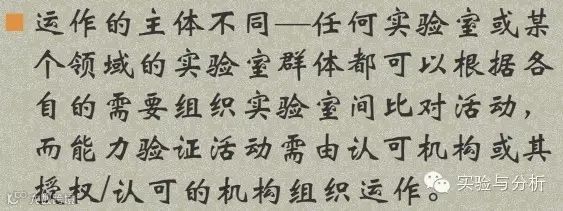 运作的主体不同—任何实验室或某
个领域的实验室群体都可以根据各
自的需要组织实验室间比对活动，
而能力验证活动需由认可机构或其
授权/认可的机构组织运作。
实验与分析